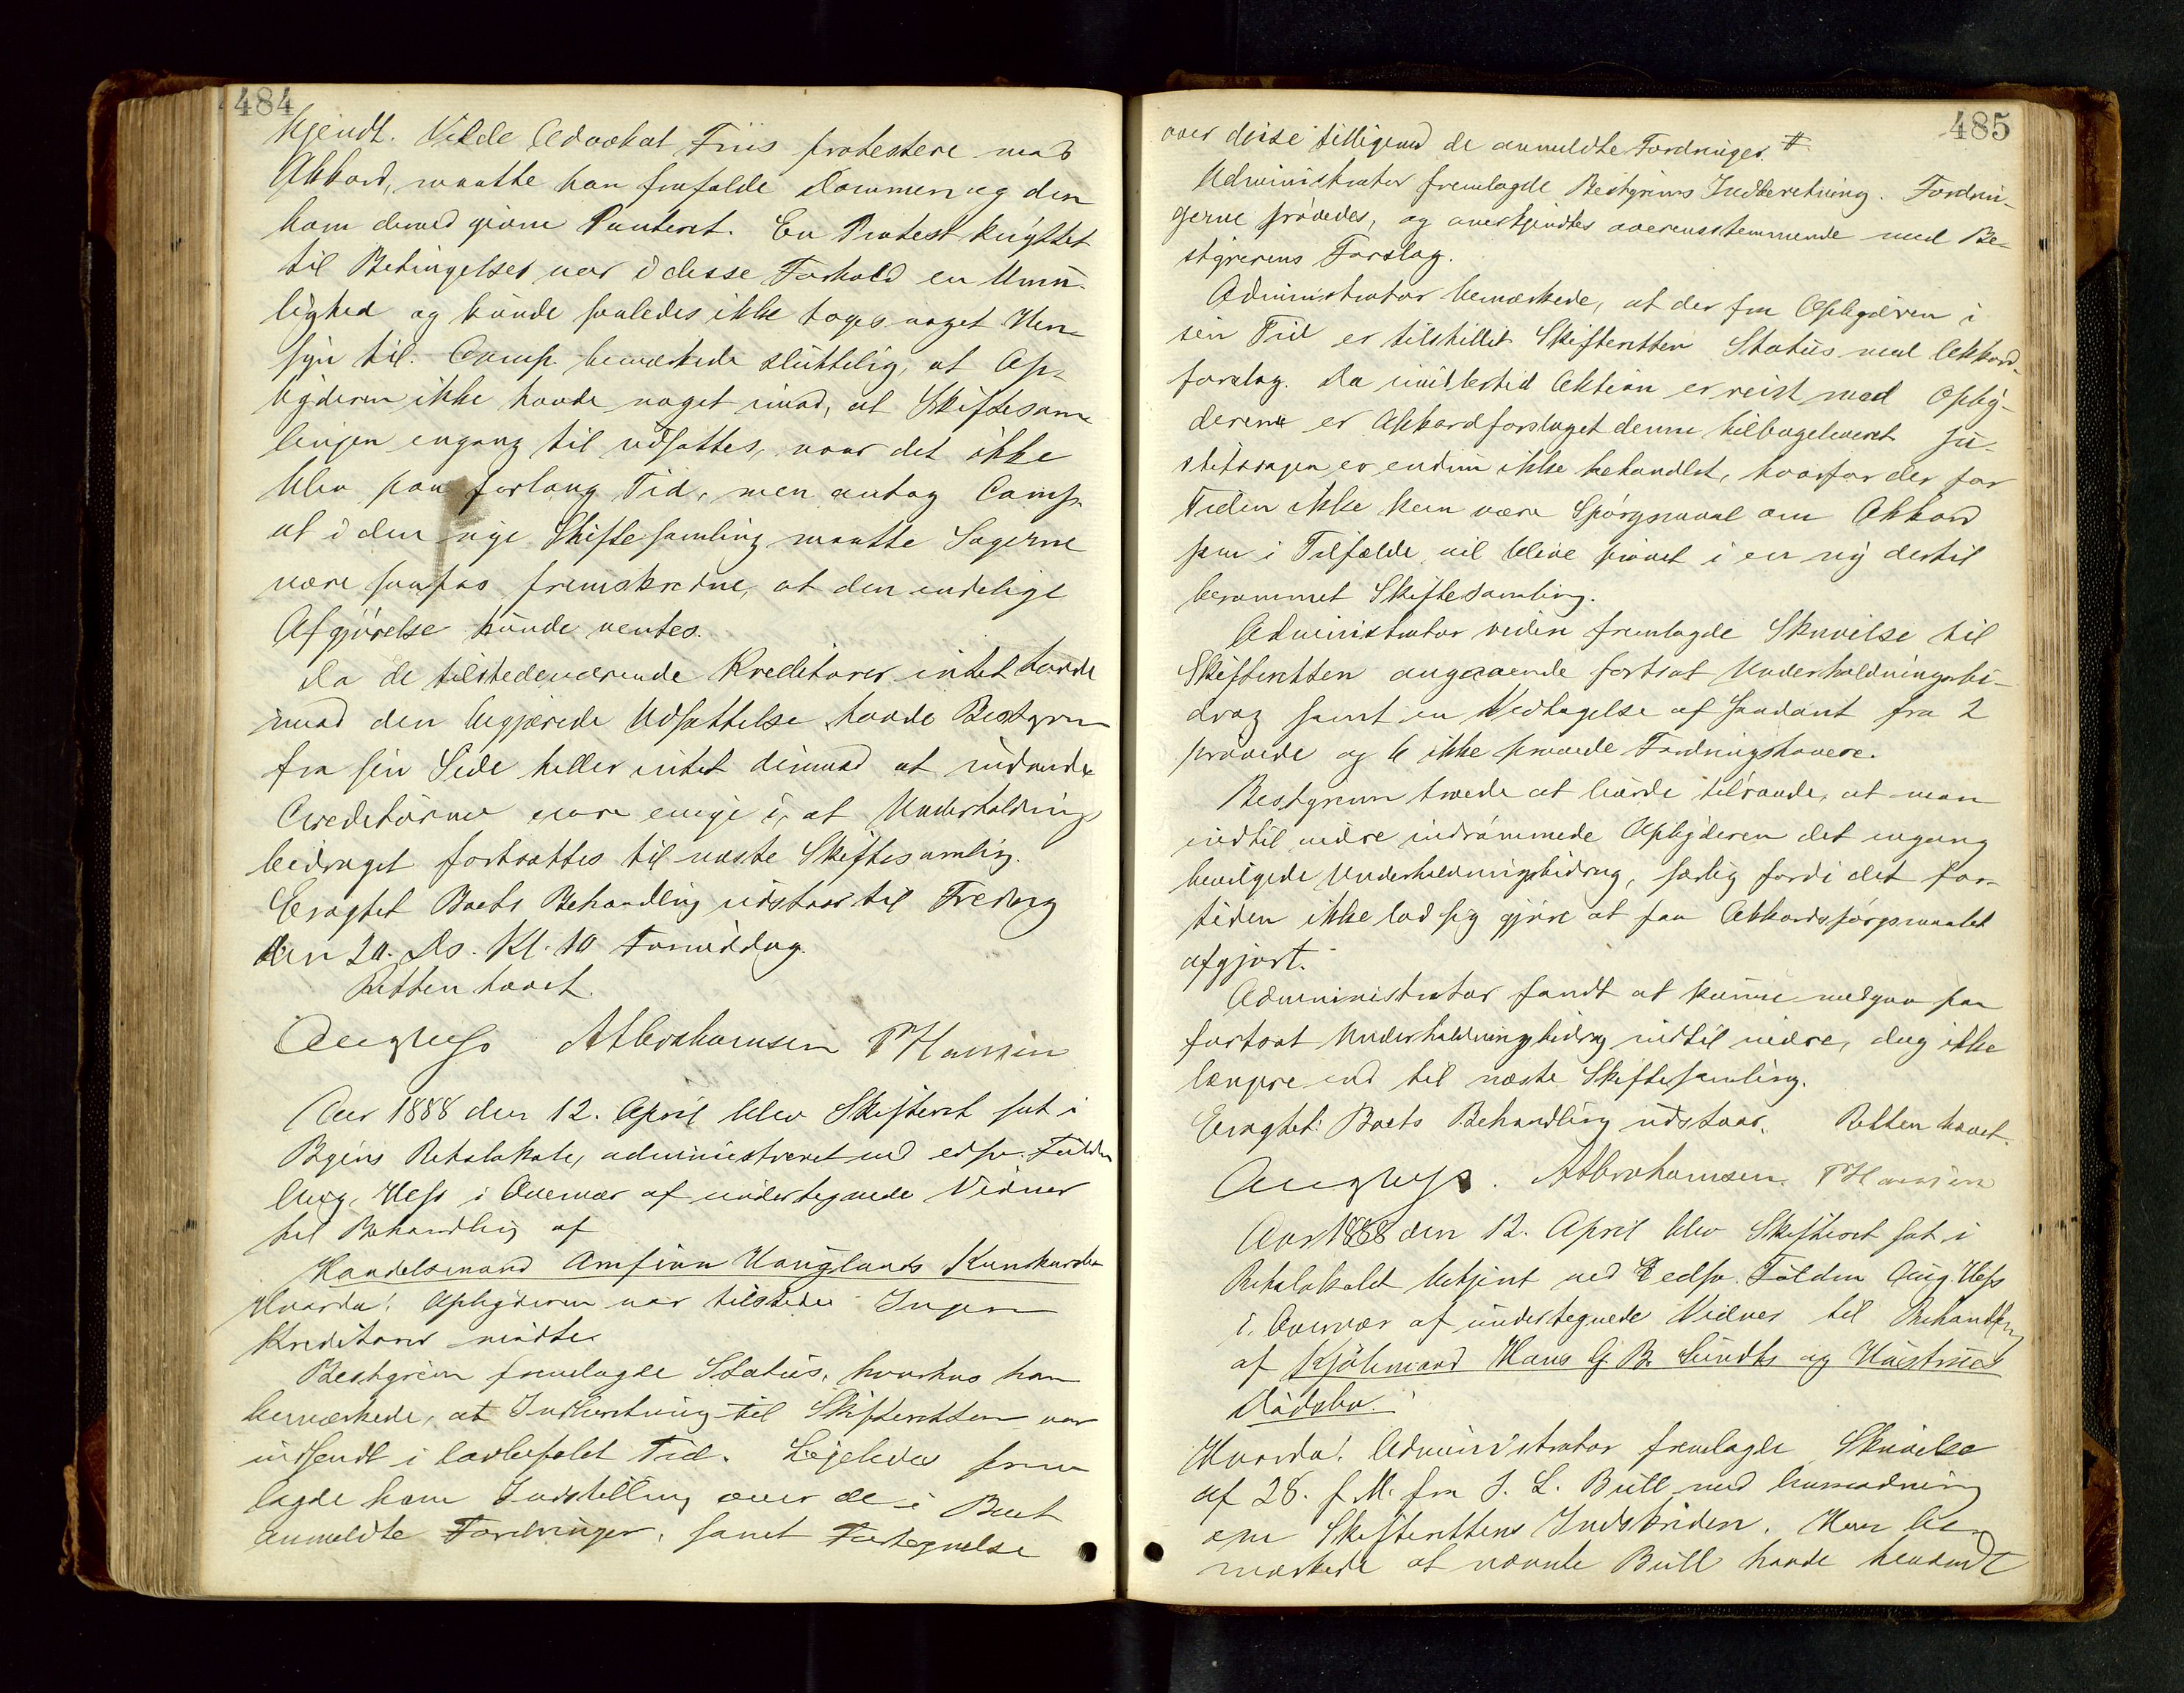 484
kjendt. Vilde Advokat Friis protestere mod
Akkord, maatte han frafalde Dommen og den
ham derved givne Panteret. En Protest knyttet
til Betingelser var i disse Forhold en Umu-
lighed og kunde saaledes ikke tages noget Hen-
syn til. Comp. bemærkede sluttelig, at Op-
byderen ikke havde noget imod, at Skiftesam
lingen engang til udsattes, naar det ikke
blev paa forlang Tid, men antog Comp.
at i den nye Skiftesamling maatte Sagerne
være saapas fremskredne, at den endelige
Afgjørelse kunde ventes.
Da de tilstedeværende Kreditorer intet havde
imod den begjærede Udsættelse havde Bestyren
fra sin Side heller intet derimod at indvende
Creditorerne vare enige i, at Underholdnings
bidraget fortsattes til næste Skiftesamling.
Eragtet Boets Behandling udstaar til Fredag
den 20. Ds. Kl. 10 Formiddag.
Retten hævet.
Aug Hess AAbrahamsen PHansen
Aar 1888 den 12. April blev Skifteret sat i
Byens Retslokale, administreret ved edsv. Fuldm
Aug. Hess i Overvær af undertegnede Vidner
til Behandling af
Handelsmand Amfinn Hauglands Konkursbo
Hvorda! Opbyderen var tilstede Ingen
Kreditorer mødte.
Bestyreren fremlagde Status, hvorhos han
bemærkede, at Indberetning til Skifteretten var
indsendt i lovbefalet Tid. Ligeledes frem
lagde han Indstilling over de i Boet
anmeldte Fordringer, samt Fortegnelse
485
over disse tilligemed de anmeldte Fordringer. #
Administrator fremlagde Bestyrerens Indberetning. Fordrin-
gerne prøvedes, og anerkjendtes overensstemmende med Be-
styrerens Forslag.
Administrator bemærkede, at der fra Opbyderen i
sin Tid er tilstillet Skifteretten Status med Akkord-
forslag. Da imidlertid Aktion er reist mod Opby-
deren er Akkordforslaget denne tilbageleveret Ju-
stitssagen er endnu ikke behandlet, hvorfor der for
Tiden ikke kan være Spørgsmaal om Akkord
som i Tilfælde vil blive prøvet i en ny dertil
berammet Skiftesamling.
Administrator videre fremlagde Skrivelse til
Skifteretten angaaende fortsat Underholdningsbi-
drag samt en Vedtagelse af saadant fra 2
prøvede og 6 ikke prøvede Fordringshavere.
Bestyreren troede at burde tilraade, at man
indtil videre indrømmede Opbyderen det engang
bevilgede Underholdningsbidrag, særlig fordi det for-
tiden ikke lod sig gjøre at faa Akkordspørgsmaalet
afgjort.
Administrator fandt at kunne medgaa paa
fortsat Underholdningsbidrag indtil videre, dog ikke
længere end til næste Skiftesamling.
Eragtet: Boets Behandling udstaar. Retten hævet.
Aug Hess. AAbrahamsen. PHansen
Aar 1888 den 12. April blev Skifteret sat i
Retslokalet betjent ved edsv. Fuldm Aug. Hess
i Overvær af undertegnede Vidner til Behandling
af Kjøbmand Hans G. B. Sundts og Hustrues
Dødsbo.
Hvorda! Administrator fremlagde Skrivelse
af 28. f. M. fra J. L. Bull med Anmodning
om Skifterettens Indskriden. Han be-
mærkede at nævnte Bull havde henvendt